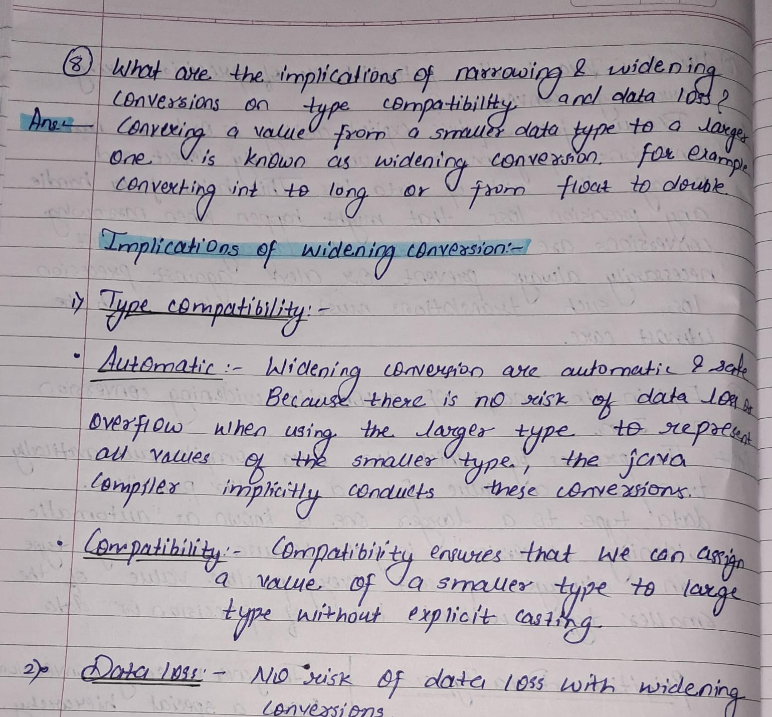 ⑧ What are the implications of narrowing & widening
conversions on type compatibility and data loss?
Ans:- Convering a value from a smaller data type to a larger
one is known as widening conversion. for example
converting int to long or from float to double.
Implications of widening conversion:-
i) Type compatibility:-
• Automatic :- Widening conversion are automatic & safe
Because there is no risk of data loss or
overflow when using the larger type to represent
all values of the smaller type, the java
compiler implicitly conducts these conversions.
• Compatibility:- Compatibility ensures that we can assign
a value of a smaller type to large
type without explicit casting.
2) Data loss:- No risk of data loss with widening
conversions